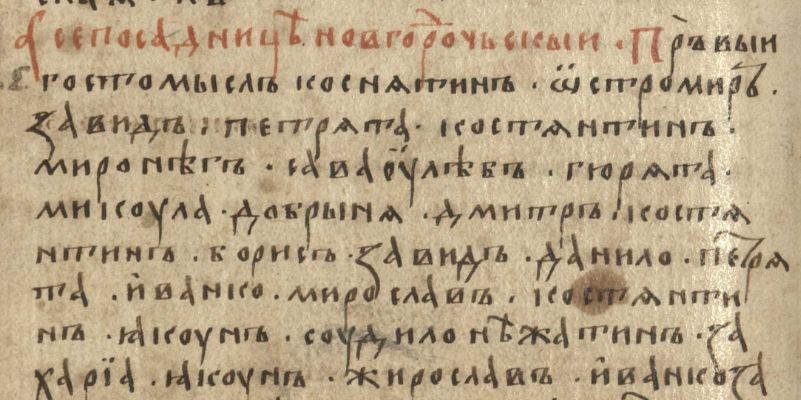 а се посадницѣ новгорочьскыи · Пръвыи
гостомыслъ коснѧтинъ · ѿстромиръ ·
Завидъ · петрѧта · костѧнтинъ ·
миронѣгъ · сава оулѣбъ · гюрѧта ·
микоула · добрынѧ · дмитръ · костѧ
нтинъ · борисъ · Завидъ · данило · петрѧ
та · иванко · мирославъ · костѧнти
нъ · ꙗкоунъ · соудило нѣжатинъ · за
харїа · ꙗкоунъ · жирославъ · иванко за